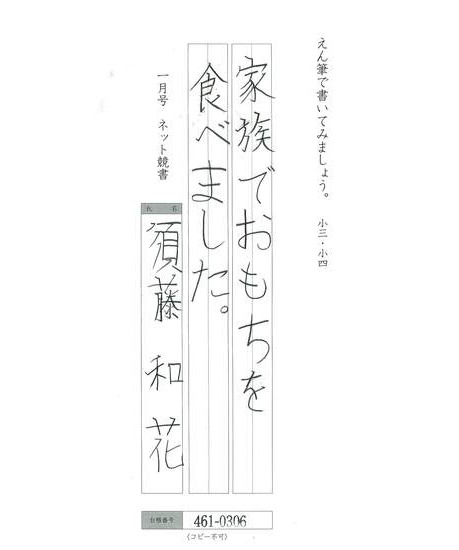 えん筆で書いてみましょう。 小三・小四
家族でおもちを
食べました。
一月号 ネット競書
氏 名
須藤 和花
台帳番号 461-0306
(コピー不可)